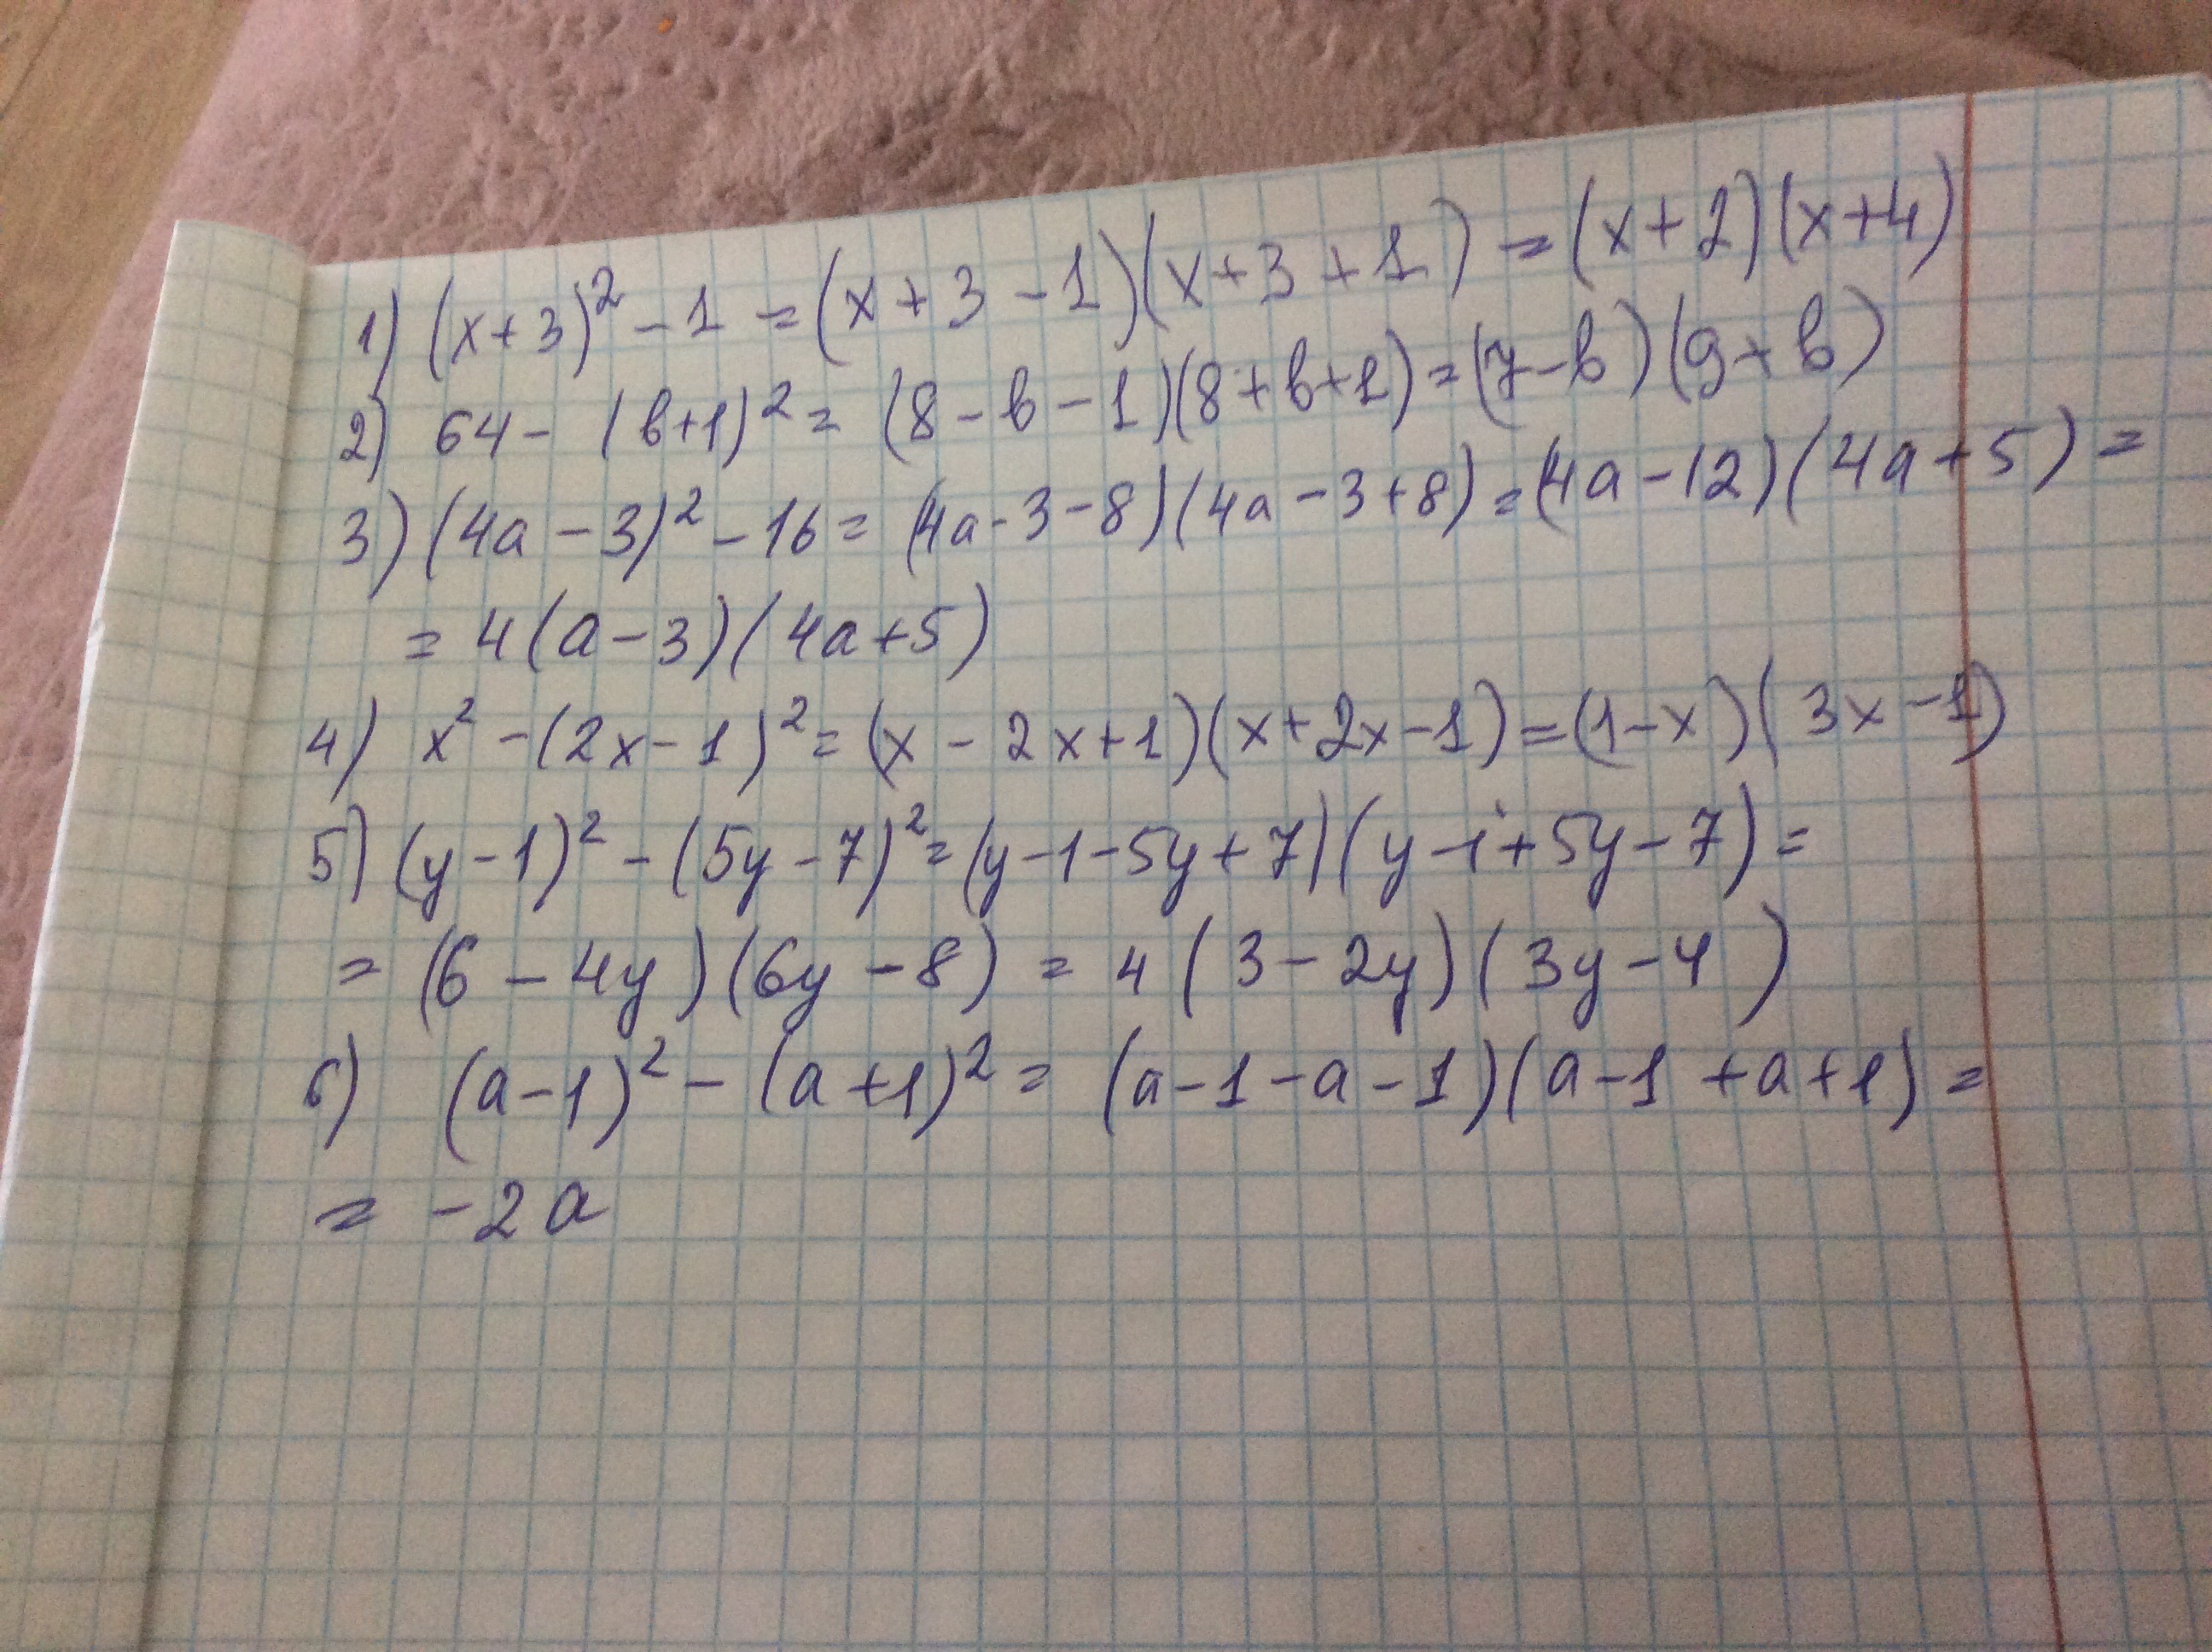 1) (x+3)² - 1 = (x+3-1)(x+3+1) = (x+2)(x+4)
2) 64 - (b+1)² = (8-b-1)(8+b+1) = (7-b)(9+b)
3) (4a-3)² - 16 = (4a-3-8)(4a-3+8) = (4a-12)(4a+5) =
= 4(a-3)(4a+5)
4) x² - (2x-1)² = (x-2x+1)(x+2x-1) = (1-x)(3x-1)
5) (y-1)² - (5y-7)² = (y-1-5y+7)(y-1+5y-7) =
= (6-4y)(6y-8) = 4(3-2y)(3y-4)
6) (a-1)² - (a+1)² = (a-1-a-1)(a-1+a+1) =
= -2a